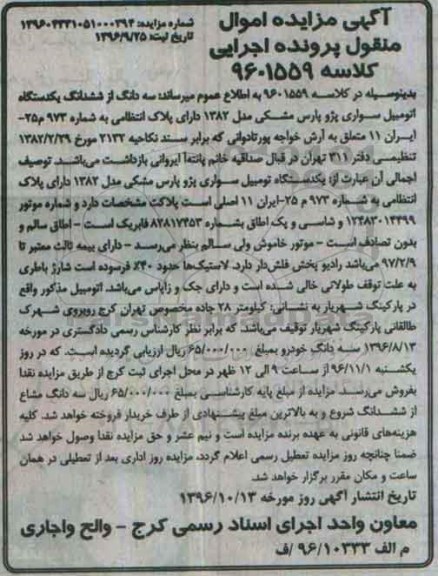 آگهی مزایده اموال
منقول پرونده اجرایی
کلاسه ۹۶۰۱۵۵۹
شماره مزایده: ۱۳۹۶۰۴۳۳۱۰۵۱۰۰۰۳۹۴
تاریخ ثبت: ۱۳۹۶/۹/۲۵
بدینوسیله در کلاسه ۹۶۰۱۵۵۹ به اطلاع عموم میرساند: سه دانگ از ششدانگ یکدستگاه
اتومبیل سواری پژو پارس مشکی مدل ۱۳۸۲ دارای پلاک انتظامی به شماره ۹۷۳ م۲۵-
ایران ۱۱ متعلق به آرش خواجه پورتادوانی که برابر سند نکاحیه ۲۱۳۲ مورخ ۱۳۸۲/۲/۲۹
تنظیمی دفتر ۳۱۱ تهران در قبال صداقیه خانم پانته‌آ ایروانی بازداشت می‌باشد. توصیف
اجمالی آن عبارت از: یکدستگاه تومبیل سواری پژو پارس مشکی مدل ۱۳۸۲ دارای پلاک
انتظامی به شماره ۹۷۳ م ۲۵-ایران ۱۱ اصلی است پلاکت مشخصات دارد و شماره موتور
۱۲۴۸۳۰۱۴۴۹۹ و شاسی و یک اطاق بشماره ۸۲۸۱۷۴۵۳ فابریک است - اطاق سالم و
بدون تصادف است - موتور خاموش ولی سالم بنظر می‌رسد - دارای بیمه ثالث معتبر تا
۹۷/۲/۹ می‌باشد رادیو پخش فلش‌دار دارد. لاستیک‌ها حدود ۴۰٪ فرسوده است شارژ باطری
به علت توقف طولانی خالی شده است و دارای جک و زاپاس می‌باشد. اتومبیل مذکور واقع
در پارکینگ شهریار به نشانی: کیلومتر ۲۸ جاده مخصوص تهران کرج روبروی شهرک
طالقانی پارکینگ شهریار توقیف می‌باشد. که برابر نظر کارشناس رسمی دادگستری در مورخه
۱۳۹۶/۸/۱۳ سه دانگ خودرو بمبلغ ۶۵/۰۰۰/۰۰۰ ریال ارزیابی گردیده است. که در روز
یکشنبه ۹۶/۱۱/۱ از ساعت ۹ الی ۱۲ ظهر در محل اجرای ثبت کرج از طریق مزایده نقدا
بفروش می‌رسد. مزایده از مبلغ پایه کارشناسی بمبلغ ۶۵/۰۰۰/۰۰۰ ریال سه دانگ مشاع
از ششدانگ شروع و به بالاترین مبلغ پیشنهادی از طرف خریدار فروخته خواهد شد. کلیه
هزینه‌های قانونی به عهده برنده مزایده است و نیم عشر و حق مزایده نقدا وصول خواهد شد
ضمنا چنانچه روز مزایده تعطیل رسمی اعلام گردد، مزایده روز اداری بعد از تعطیلی در همان
ساعت و مکان مقرر برگزار خواهد شد.
تاریخ انتشار آگهی روز مورخه ۱۳۹۶/۱۰/۱۳
معاون واحد اجرای اسناد رسمی کرج - والح واجاری
م الف ۹۶/۱۰۳۳۳/ف